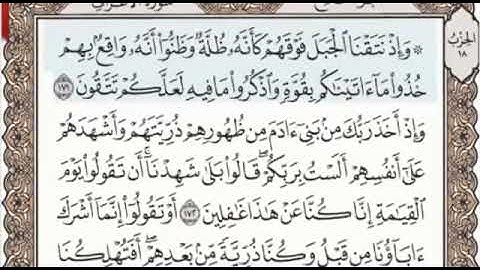 الحِزْبُ
١٨
۞ وَإِذْ نَتَقْنَا ٱلْجَبَلَ فَوْقَهُمْ كَأَنَّهُۥ ظُلَّةٌ وَظَنُّوٓا۟ أَنَّهُۥ وَاقِعٌۢ بِهِمْ
خُذُوا۟ مَآ ءَاتَيْنَٰكُم بِقُوَّةٍ وَٱذْكُرُوا۟ مَا فِيهِ لَعَلَّكُمْ تَتَّقُونَ ١٧١
وَإِذْ أَخَذَ رَبُّكَ مِنۢ بَنِىٓ ءَادَمَ مِن ظُهُورِهِمْ ذُرِّيَّتَهُمْ وَأَشْهَدَهُمْ
عَلَىٰٓ أَنفُسِهِمْ أَلَسْتُ بِرَبِّكُمْ ۖ قَالُوا۟ بَلَىٰ شَهِدْنَآ ۛ أَن تَقُولُوا۟ يَوْمَ
ٱلْقِيَٰمَةِ إِنَّا كُنَّا عَنْ هَٰذَا غَٰفِلِينَ ١٧٢ أَوْ تَقُولُوٓا۟ إِنَّمَآ أَشْرَكَ
ءَابَآؤُنَا مِن قَبْلُ وَكُنَّا ذُرِّيَّةً مِّنۢ بَعْدِهِمْ ۖ أَفَتُهْلِكُنَا